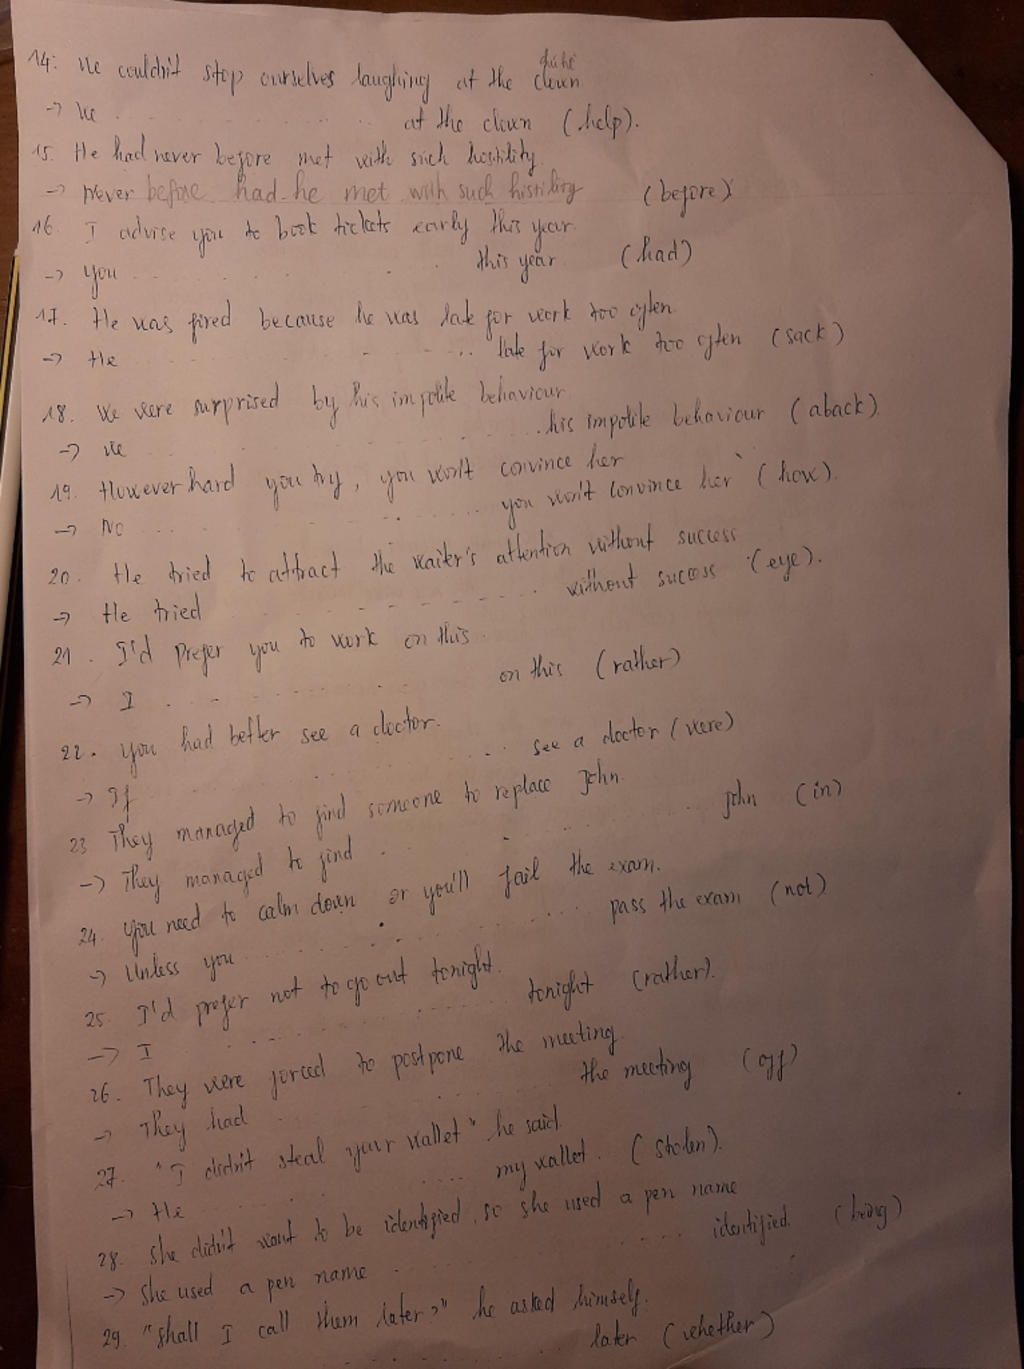 14. We couldn't stop ourselves laughing at the clown
→ We .......... at the clown (help).
15. He had never before met with such hostility.
→ Never before had he met with such histility (before)
16. I advise you to book tickets early this year.
→ You .......... this year (had)
17. He was fired because he was late for work too often
→ He .......... late for work too often (sack)
18. We were surprised by his impolite behaviour
→ We .......... his impolite behaviour (aback).
19. However hard you try, you won't convince her
→ No .......... you won't convince her (how).
20. He tried to attract the waiter's attention without success
→ He tried .......... without success (eye).
21. I'd prefer you to work on this.
→ I .......... on this (rather)
22. You had better see a doctor.
→ If .......... see a doctor (were)
23 They managed to find someone to replace John.
→ They managed to find .......... John (in)
24. You need to calm down or you'll fail the exam.
→ Unless you .......... pass the exam (not)
25. I'd prefer not to go out tonight.
→ I .......... tonight (rather).
26. They were forced to postpone the meeting.
→ They had .......... the meeting (off)
27. "I didn't steal your wallet" he said.
→ He .......... my wallet. (stolen).
28. She didn't want to be identified, so she used a pen name
→ She used a pen name .......... identified. (being)
29. "Shall I call them later?" he asked himself.
.......... later (whether)